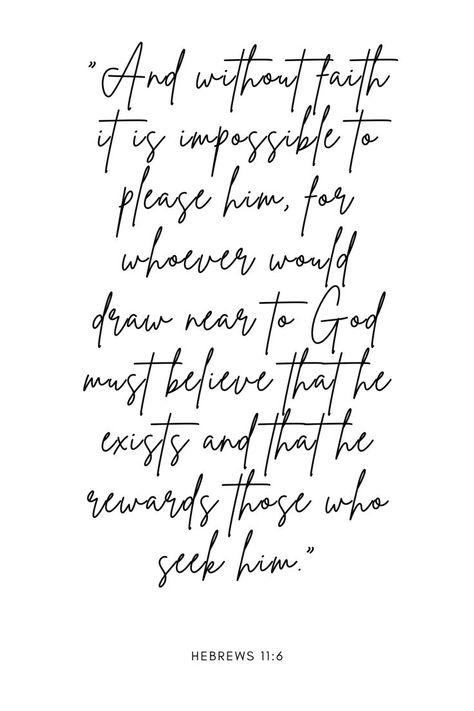 "And without faith
it is impossible to
please him, for
whoever would
draw near to God
must believe that he
exists and that he
rewards those who
seek him."
HEBREWS 11:6